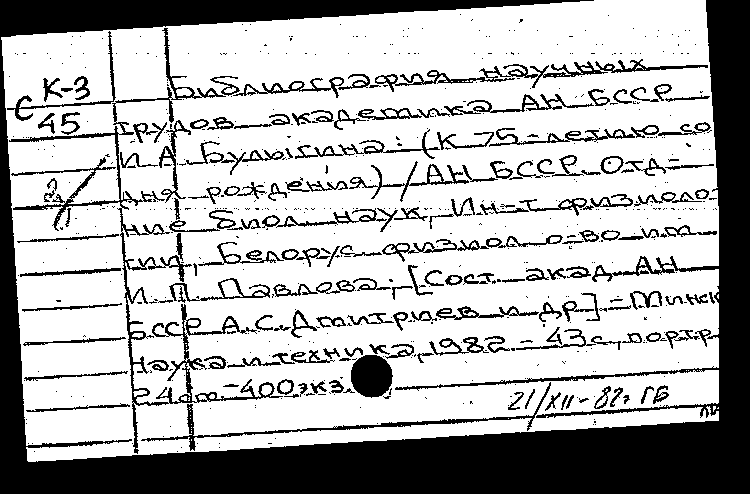 К-3
С 45
Библиография научных
трудов академика АН БССР
И А. Булыгина: (К 75-летию со
дня рождения) / АН БССР. Отд-
ние биол. наук, Ин-т физиоло-
гии, Белорус. физиол. о-во им.
И. П. Павлова; [Сост. акад. АН
БССР А.С. Дмитриев и др.] - Минск
Наука и техника, 1982. - 43 с., портр.
24 см. - 400 экз.
21/XII - 82г. ГБ